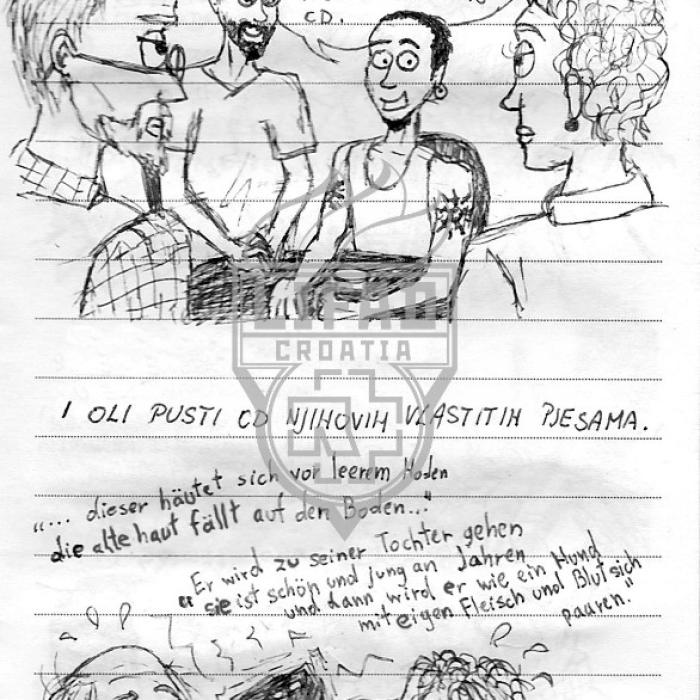 CD.
LIFAD
CROATIA
I OLI PUSTI CD NJIHOVIH VLASTITIH PJESAMA.
"... dieser häutet sich vor leerem Hoden
die alte haut fällt auf den Boden..."
"Er wird zu seiner Tochter gehen
sie ist schön und jung an Jahren
und dann wird er wie ein Hund
mit eigen Fleisch und Blut sich
paaren."